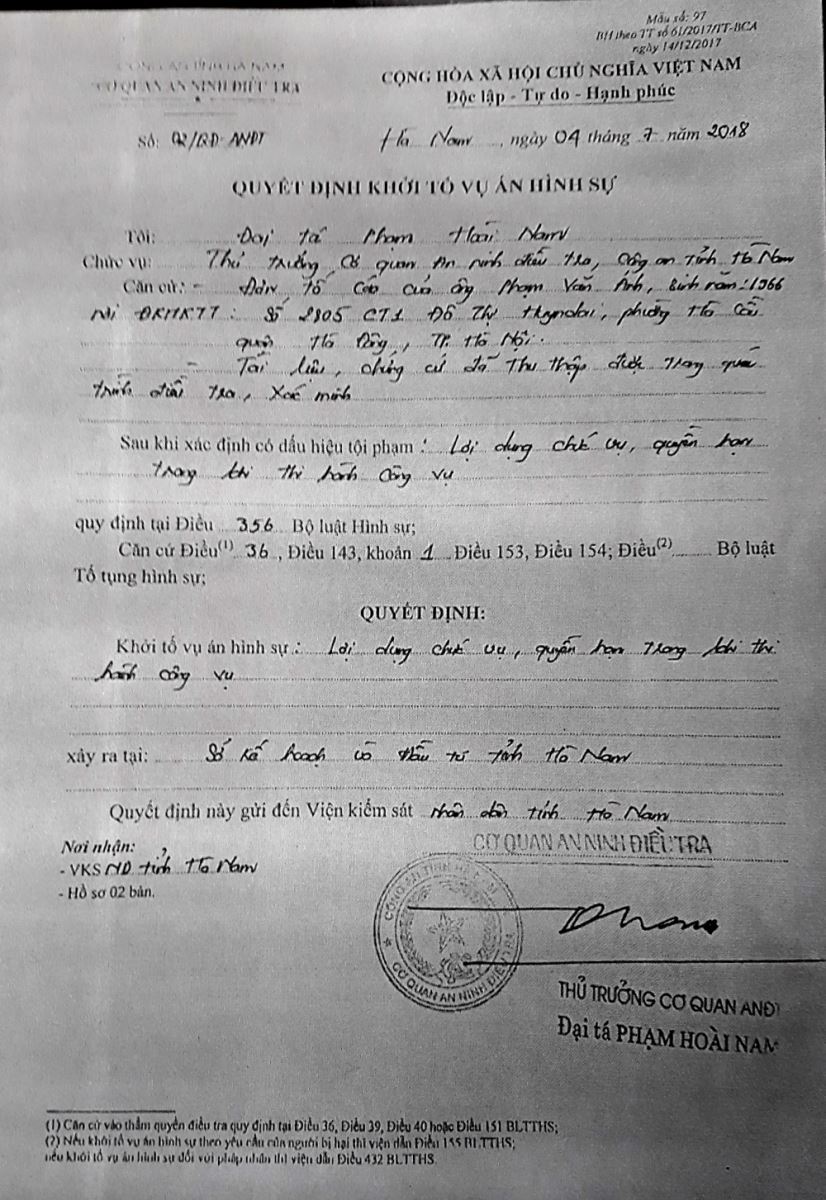 Mẫu số: 97
BH theo TT số 61/2017/TT-BCA
ngày 14/12/2017
CÔNG AN TỈNH HÀ NAM
CƠ QUAN AN NINH ĐIỀU TRA
CỘNG HÒA XÃ HỘI CHỦ NGHĨA VIỆT NAM
Độc lập - Tự do - Hạnh phúc
Số: 02/QĐ-ANĐT
Hà Nam, ngày 04 tháng 7 năm 2018
QUYẾT ĐỊNH KHỞI TỐ VỤ ÁN HÌNH SỰ
Tôi: Đại tá Phạm Hoài Nam
Chức vụ: Thủ trưởng Cơ quan An ninh điều tra, Công an tỉnh Hà Nam
Căn cứ: - Đơn tố cáo của ông Phạm Văn Ánh, Sinh năm: 1966
Nơi ĐKHKTT: Số 2805 CT1 Đô Thị Huyndai, phường Hà Cầu
quận Hà Đông, TP. Hà Nội.
- Tài liệu, chứng cứ đã thu thập được trong quá
trình điều tra, xác minh
Sau khi xác định có dấu hiệu tội phạm: Lợi dụng chức vụ, quyền hạn
trong khi thi hành công vụ
quy định tại Điều 356 Bộ luật Hình sự;
Căn cứ Điều(1) 36, Điều 143, khoản 1 Điều 153, Điều 154; Điều(2) Bộ luật
Tố tụng hình sự;
QUYẾT ĐỊNH:
Khởi tố vụ án hình sự: Lợi dụng chức vụ, quyền hạn trong khi thi
hành công vụ
xảy ra tại: Sở Kế hoạch và Đầu tư tỉnh Hà Nam
Quyết định này gửi đến Viện kiểm sát nhân dân tỉnh Hà Nam
Nơi nhận:
- VKSND tỉnh Hà Nam
- Hồ sơ 02 bản.
CƠ QUAN AN NINH ĐIỀU TRA
CÔNG AN TỈNH HÀ NAM
CƠ QUAN AN NINH ĐIỀU TRA
THỦ TRƯỞNG CƠ QUAN ANĐT
Đại tá PHẠM HOÀI NAM
(1) Căn cứ vào thẩm quyền điều tra quy định tại Điều 36, Điều 39, Điều 40 hoặc Điều 151 BLTTHS;
(2) Nếu khởi tố vụ án hình sự theo yêu cầu của người bị hại thì viện dẫn Điều 155 BLTTHS;
nếu khởi tố vụ án hình sự đối với pháp nhân thì viện dẫn Điều 432 BLTTHS.